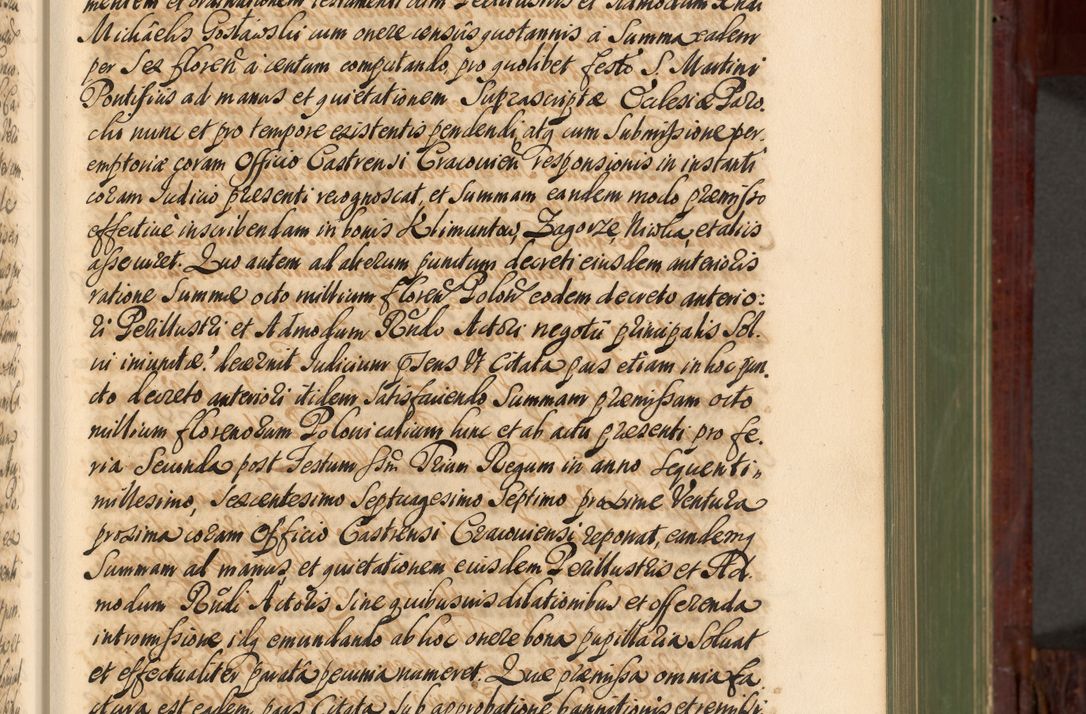 mentem et ordinationem testamenti cum Perillustris et Admodum Rndi
Michaelis Gostawski cum onere census quotannis à Summa eadem
per Sex floren̄ à centum computando, pro quolibet festo S. Martini
Pontificis ad manus et quietationem Suprascriptæ Ecclesiæ Paro-
chi nunc et pro tempore existentis pendendi, atq cum Submissione per
emptoriæ coram Officio Castrensi Cracovien̄ responsionis in instanti
coram Judicio præsenti recognoscat, et Summam eandem modo præmisso
effectivè inscribendam in bonis Klimuntow, Zagorze, Niwka, et aliis
assecuret. Quo autem ad alterum punctum decreti eiusdem anterioris
ratione Summæ octo millium floren̄ Polon̄ eodem decreto anterio:
ri Perillustri et Admodum Rn̄do Actori negotii principalis Sol-
vi iniunctæ! decernit Judicium p̄sens ut Citata pars etiam in hoc pun-
cto decreto anteriori itidem Satisfaciendo Summam præmissam octo
millium florenorum Polonicalium hinc et ab actu præsenti pro fe-
ria Secunda post Festum S̄s̄m̄ Trium Regum in anno Sequenti
millesimo, Sexcentesimo Septuagesimo Septimo proxime Ventura
proxima coram Officio Castrensi Cracoviensi reponat, eandemq
Summam ad manus et quietationem eiusdem Perillustris et Ad-
modum Rn̄di Actoris Sine quibusvis dilationibus et offerenda
intromissione idq emundando ab hoc onere bona pupillaria Solvat
et effectualiter parata pecunia numeret. Quæ præmissa omnia fa-
ctura est eadem pars Citata Sub approbatione bannitionis et remissi